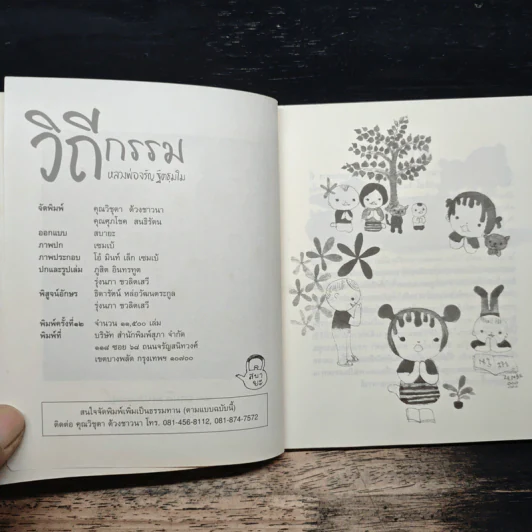 วิถีกรรม
หลวงพ่อจรัญ ฐิตธมฺโม
จัดพิมพ์ คุณวิชุดา ด้วงชาวนา
คุณศุภโชค สนธิรัตน
ออกแบบ สบายะ
ภาพปก เซมเบ้
ภาพประกอบ โอ๋ มินท์ เล็ก เซมเบ้
ปกและรูปเล่ม ภูสิต อินทรทูต
รุ่งนภา ชวลิตเสวี
พิสูจน์อักษร ธิดารัตน์ หล่อวัฒนตระกูล
รุ่งนภา ชวลิตเสวี
พิมพ์ครั้งที่๑๒ จำนวน ๑๑,๕๐๐ เล่ม
พิมพ์ที่ บริษัท สำนักพิมพ์สุภา จำกัด
๑๑๘ ซอย ๖๘ ถนนจรัญสนิทวงศ์
เขตบางพลัด กรุงเทพฯ ๑๐๗๐๐
สบายะ
สนใจจัดพิมพ์เพิ่มเป็นธรรมทาน (ตามแบบฉบับนี้)
ติดต่อ คุณวิชุดา ด้วงชาวนา โทร. 081-456-8112, 081-874-7572